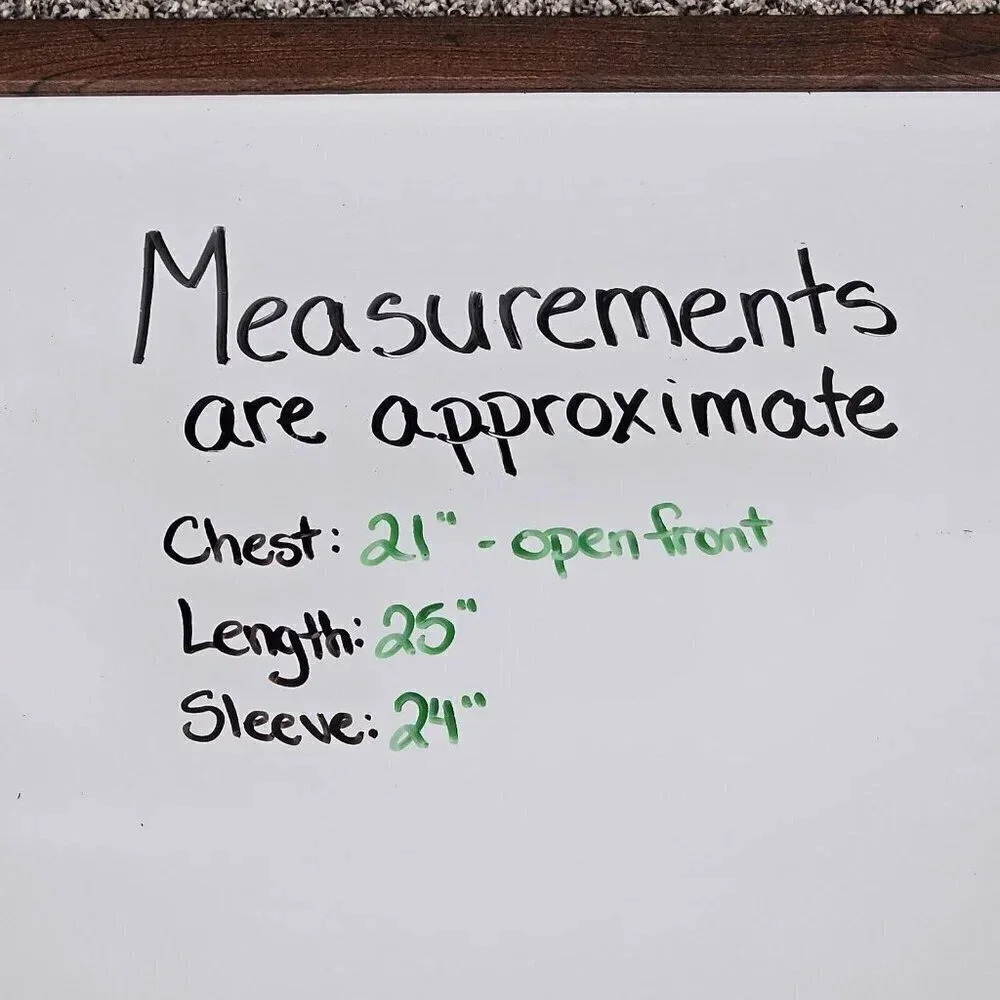 Measurements
are approximate
Chest: 21" - open front
Length: 25"
Sleeve: 24"